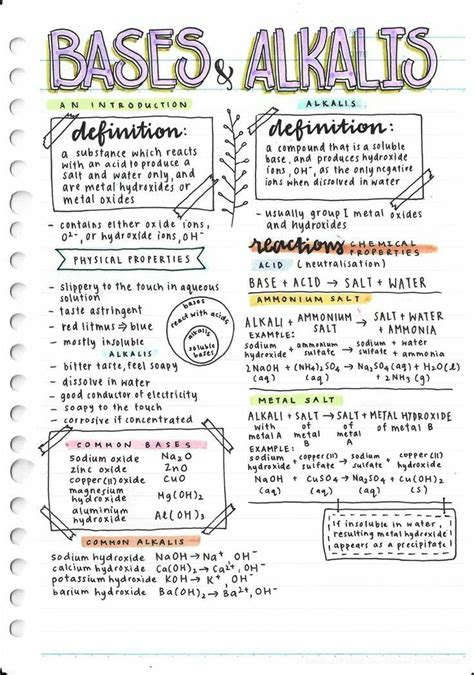 BASES & ALKALIS
AN INTRODUCTION
definition:
a substance which reacts
with an acid to produce a
salt and water only, and
are metal hydroxides or
metal oxides
- contains either oxide ions,
O²⁻, or hydroxide ions, OH⁻
PHYSICAL PROPERTIES
- slippery to the touch in aqueous
solution
- taste astringent
- red litmus ⇒ blue
- mostly insoluble
bases
react with acids
alkalis
soluble
bases
ALKALIS
- bitter taste, feel soapy
- dissolve in water
- good conductor of electricity
- soapy to the touch
- corrosive if concentrated
COMMON BASES
sodium oxide Na₂O
zinc oxide ZnO
copper(II) oxide CuO
magnesium
hydroxide Mg(OH)₂
aluminium
hydroxide Al(OH)₃
COMMON ALKALIS
sodium hydroxide NaOH → Na⁺, OH⁻
calcium hydroxide Ca(OH)₂ → Ca²⁺, OH⁻
potassium hydroxide KOH → K⁺, OH⁻
barium hydroxide Ba(OH)₂ → Ba²⁺, OH⁻
ALKALIS
definition:
a compound that is a soluble
base, and produces hydroxide
ions, OH⁻, as the only negative
ions when dissolved in water
- usually group I metal oxides
and hydroxides
reactions CHEMICAL
PROPERTIES
ACID (neutralisation)
BASE + ACID → SALT + WATER
AMMONIUM SALT
ALKALI + AMMONIUM SALT → SALT + WATER + AMMONIA
EXAMPLE:
sodium hydroxide + ammonium sulfate → sodium sulfate + water + ammonia
2NaOH + (NH₄)₂SO₄ → Na₂SO₄ + H₂O(l)
(aq) (aq) (aq) + 2NH₃(g)
METAL SALT
ALKALI + SALT → SALT + METAL HYDROXIDE
with of of of metal B
metal A metal B metal A
EXAMPLE:
sodium hydroxide + copper(II) sulfate → sodium sulfate + copper(II) hydroxide
NaOH + CuSO₄ → Na₂SO₄ + Cu(OH)₂
(aq) (aq) (aq) (s)
if insoluble in water,
resulting metal hydroxide
appears as a precipitate!